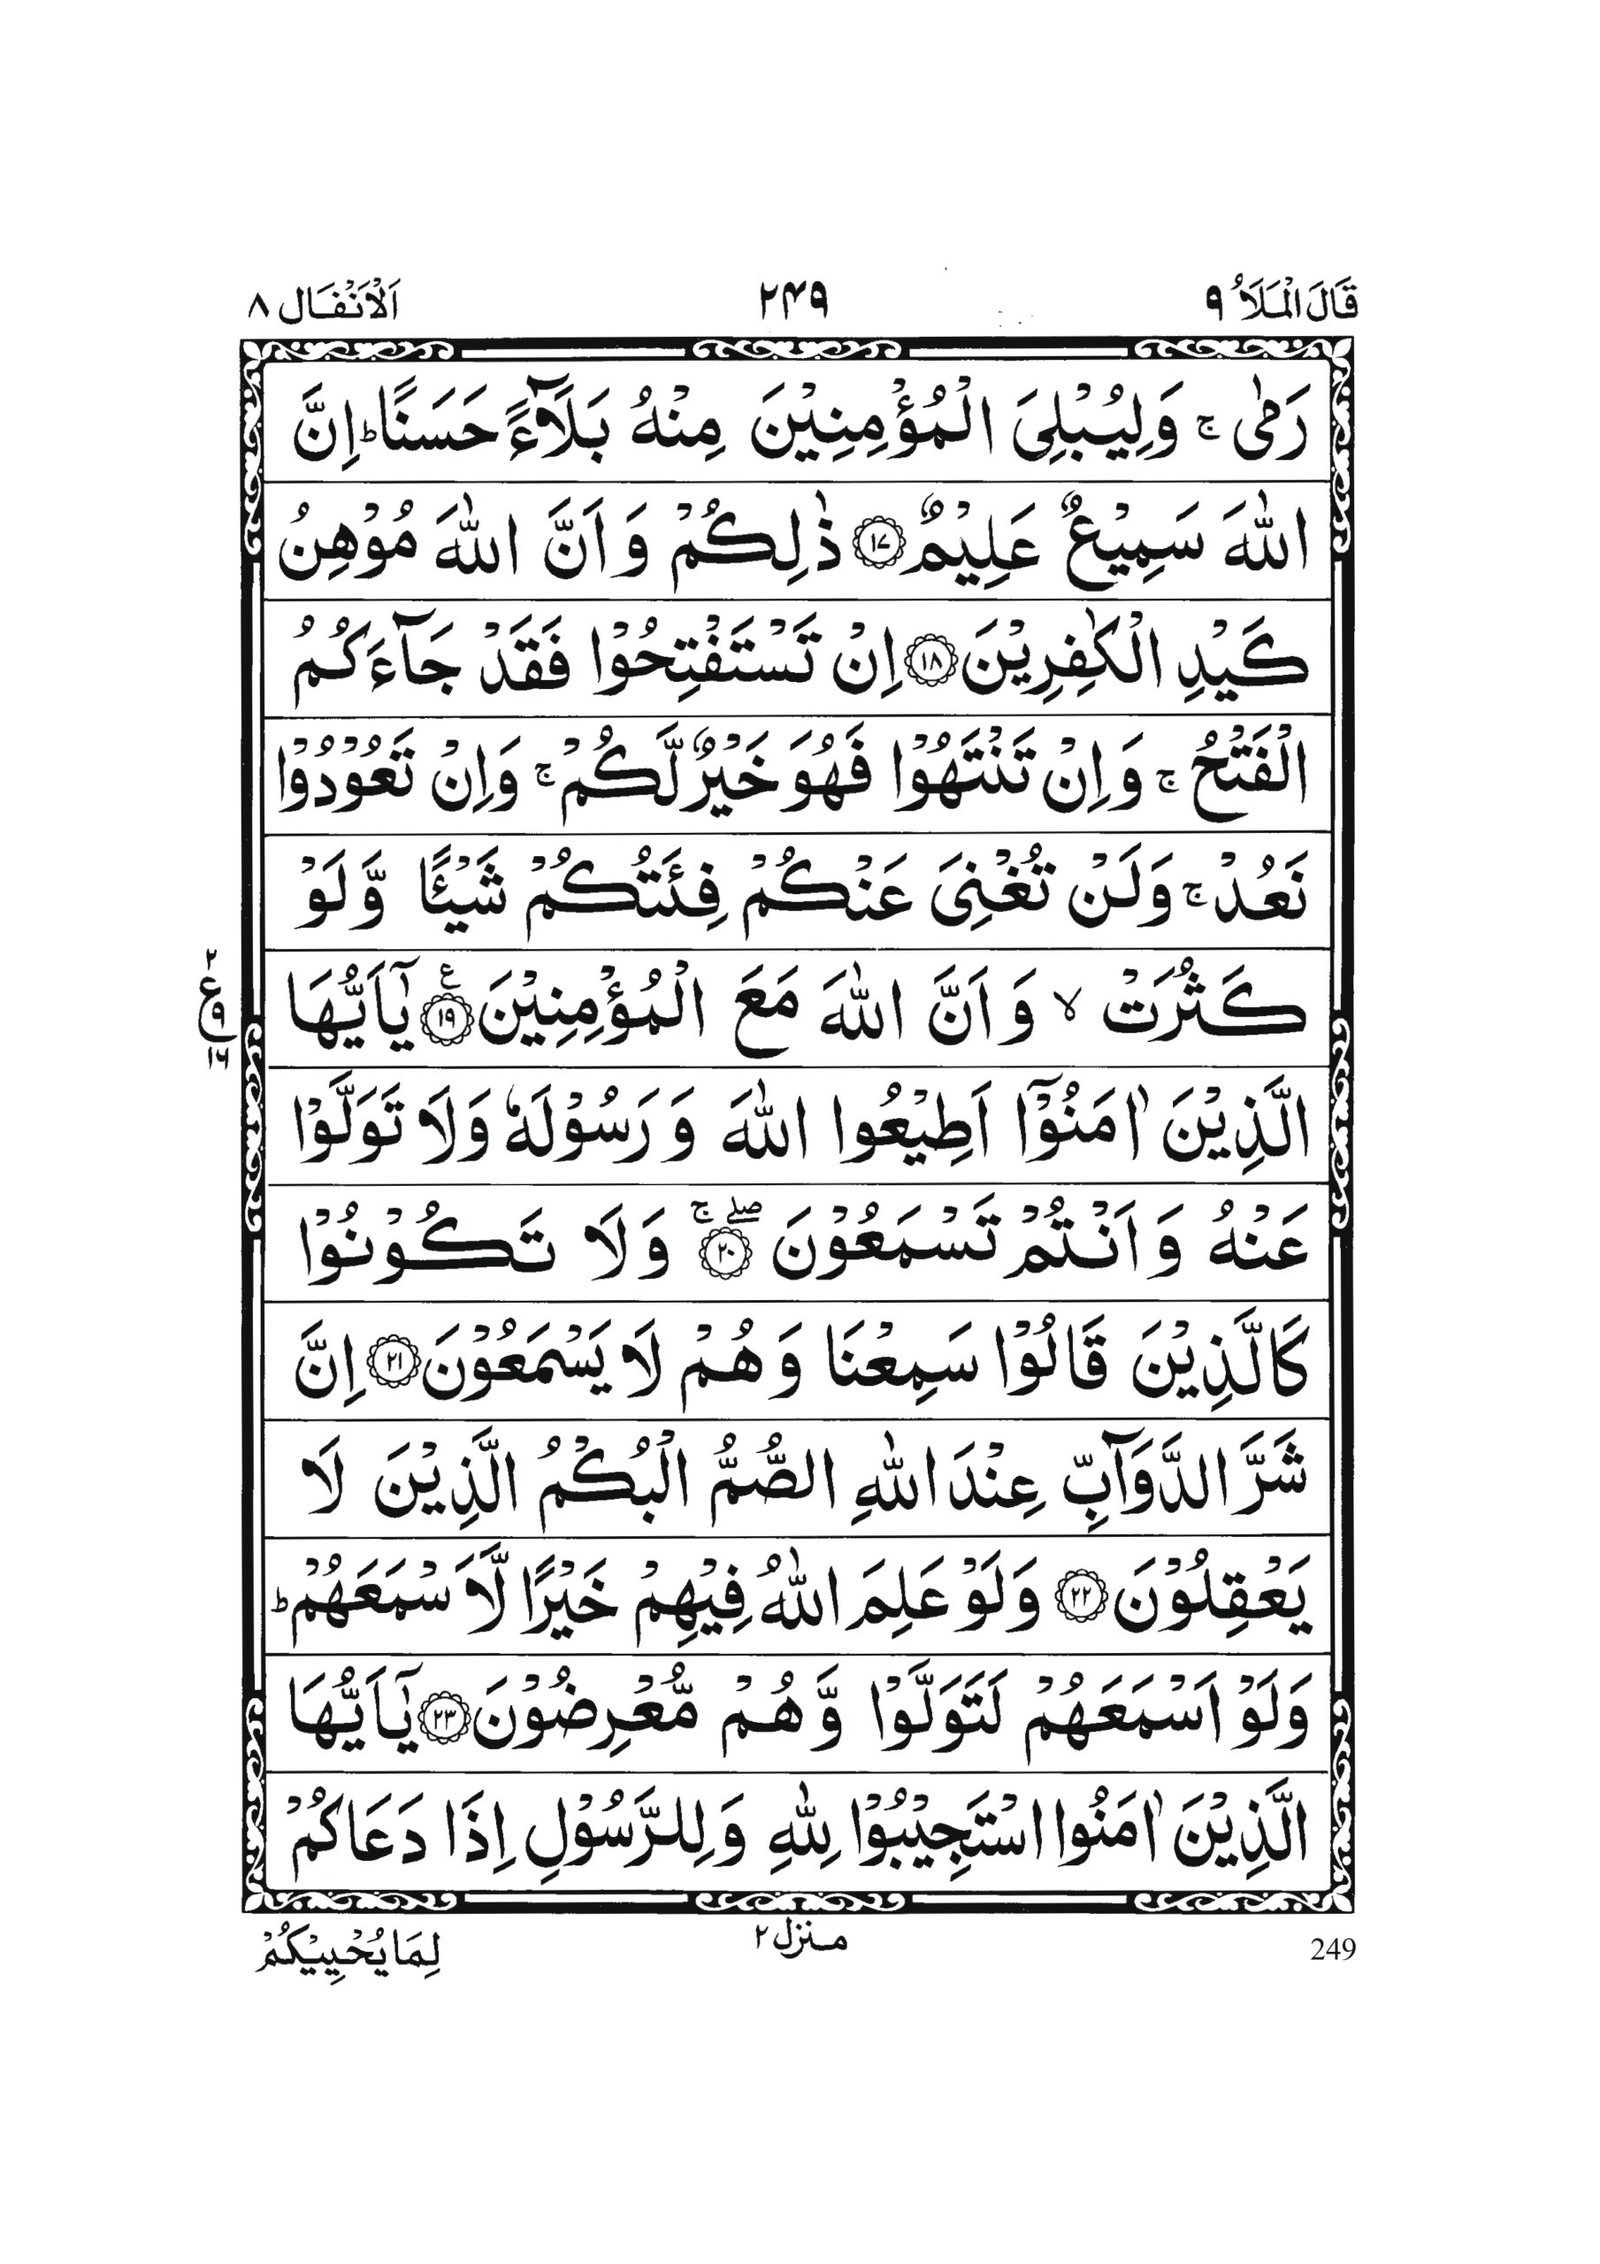 قَالَ الْمَلَاُ ٩ ٢٤٩ اَلْاَنْفَال ٨
رَمٰى ۚ وَلِيُبْلِىَ الْمُؤْمِنِيْنَ مِنْهُ بَلَآءً حَسَنًا ؕ اِنَّ
اللّٰهَ سَمِيْعٌ عَلِيْمٌ ﴿١٧﴾ ذٰلِكُمْ وَ اَنَّ اللّٰهَ مُوْهِنُ
كَيْدِ الْكٰفِرِيْنَ ﴿١٨﴾ اِنْ تَسْتَفْتِحُوْا فَقَدْ جَآءَكُمُ
الْفَتْحُ ۚ وَاِنْ تَنْتَهُوْا فَهُوَ خَيْرٌ لَّكُمْ ۚ وَاِنْ تَعُوْدُوْا
نَعُدْ ۚ وَلَنْ تُغْنِىَ عَنْكُمْ فِئَتُكُمْ شَيْـًٔا وَّلَوْ
كَثُرَتْ ۙ وَ اَنَّ اللّٰهَ مَعَ الْمُؤْمِنِيْنَ ﴿١٩﴾ ع يٰۤاَيُّهَا
٢ ع ٩ ١٦
الَّذِيْنَ اٰمَنُوْۤا اَطِيْعُوا اللّٰهَ وَ رَسُوْلَهٗ وَلَا تَوَلَّوْا
عَنْهُ وَ اَنْتُمْ تَسْمَعُوْنَ ﴿٢٠﴾ ۖ ۚ وَلَا تَكُوْنُوْا
كَالَّذِيْنَ قَالُوْا سَمِعْنَا وَ هُمْ لَا يَسْمَعُوْنَ ﴿٢١﴾ اِنَّ
شَرَّ الدَّوَآبِّ عِنْدَ اللّٰهِ الصُّمُّ الْبُكْمُ الَّذِيْنَ لَا
يَعْقِلُوْنَ ﴿٢٢﴾ وَلَوْ عَلِمَ اللّٰهُ فِيْهِمْ خَيْرًا لَّاَسْمَعَهُمْ ؕ
وَلَوْ اَسْمَعَهُمْ لَتَوَلَّوْا وَّ هُمْ مُّعْرِضُوْنَ ﴿٢٣﴾ يٰۤاَيُّهَا
الَّذِيْنَ اٰمَنُوا اسْتَجِيْبُوْا لِلّٰهِ وَلِلرَّسُوْلِ اِذَا دَعَاكُمْ
249 منزل ٢ لِمَا يُحْيِيْكُمْ